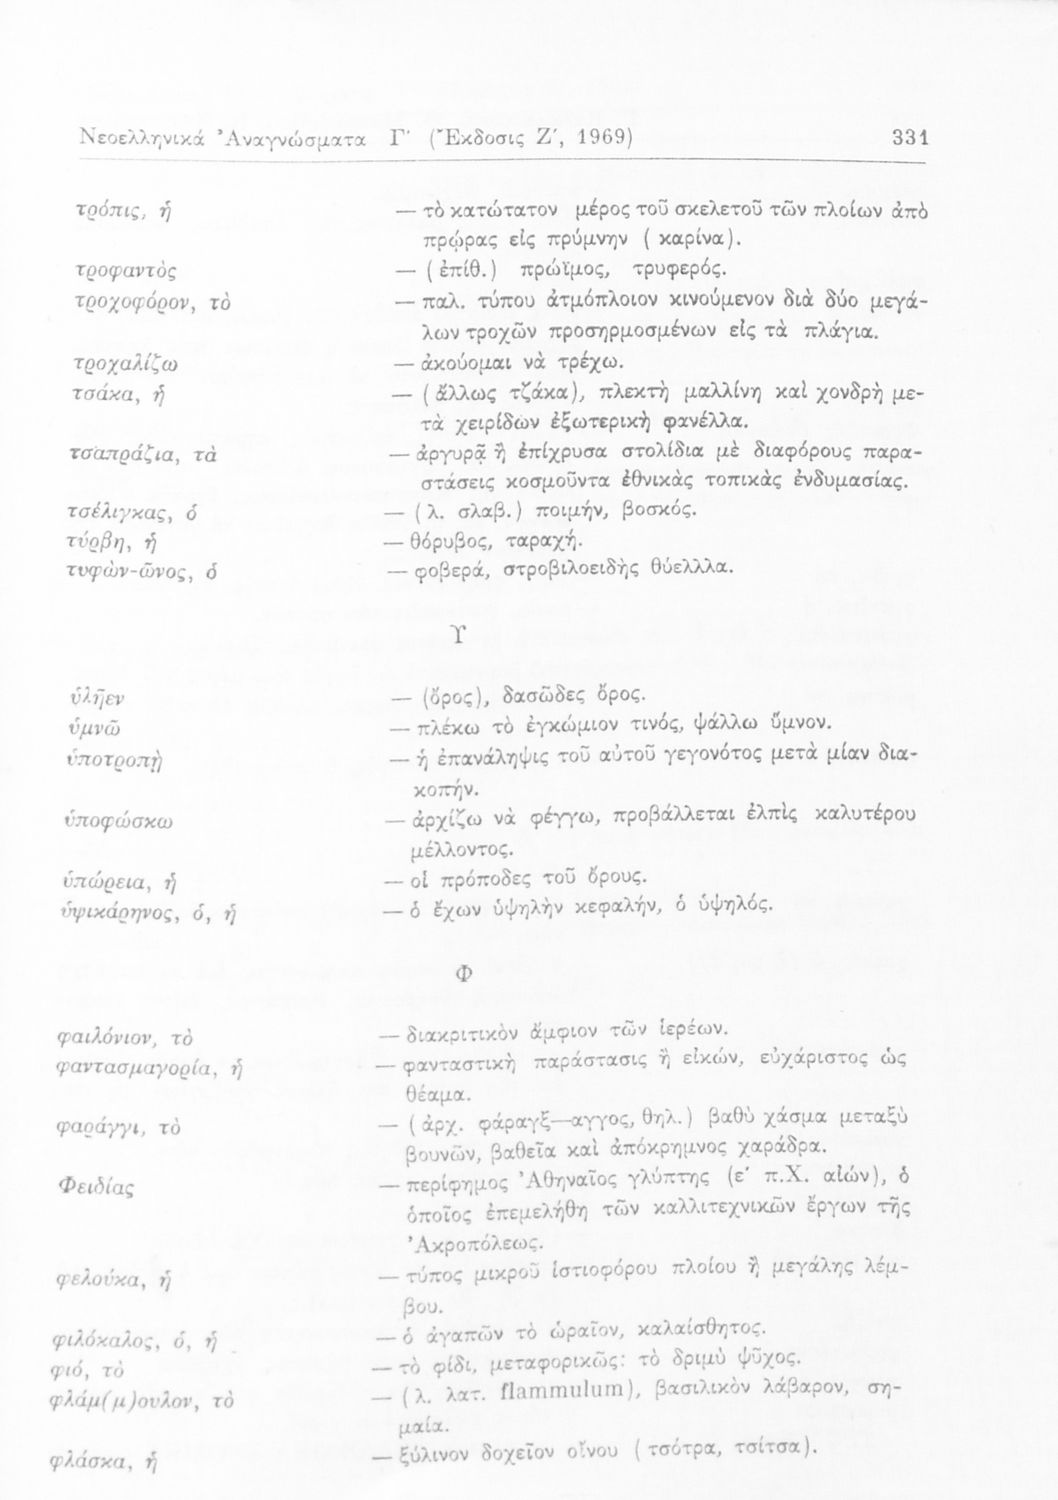 Νεοελληνικά Ἀναγνώσματα Γ΄ (Ἔκδοσις Ζ΄, 1969) 331
τρόπις, ἡ — τὸ κατώτατον μέρος τοῦ σκελετοῦ τῶν πλοίων ἀπὸ
πρῴρας εἰς πρύμνην ( καρίνα).
τροφαντὸς — ( ἐπίθ.) πρώϊμος, τρυφερός.
τροχοφόρον, τὸ — παλ. τύπου ἀτμόπλοιον κινούμενον διὰ δύο μεγά-
λων τροχῶν προσηρμοσμένων εἰς τὰ πλάγια.
τροχαλίζω — ἀκούομαι νὰ τρέχω.
τσάκα, ἡ — ( ἄλλως τζάκα), πλεκτὴ μαλλίνη καὶ χονδρὴ με-
τὰ χειρίδων ἐξωτερικὴ φανέλλα.
τσαπράζια, τὰ — ἀργυρᾶ ἢ ἐπίχρυσα στολίδια μὲ διαφόρους παρα-
στάσεις κοσμοῦντα ἐθνικὰς τοπικὰς ἐνδυμασίας.
τσέλιγκας, ὁ — ( λ. σλαβ.) ποιμήν, βοσκός.
τύρβη, ἡ — θόρυβος, ταραχή.
τυφὼν-ῶνος, ὁ — φοβερά, στροβιλοειδὴς θύελλλα.
Υ
ὑλῆεν — (ὄρος), δασῶδες ὄρος.
ὑμνῶ — πλέκω τὸ ἐγκώμιον τινός, ψάλλω ὕμνον.
ὑποτροπὴ — ἡ ἐπανάληψις τοῦ αὐτοῦ γεγονότος μετὰ μίαν δια-
κοπήν.
ὑποφώσκω — ἀρχίζω νὰ φέγγω, προβάλλεται ἐλπὶς καλυτέρου
μέλλοντος.
ὑπώρεια, ἡ — οἱ πρόποδες τοῦ ὄρους.
ὑψικάρηνος, ὁ, ἡ — ὁ ἔχων ὑψηλὴν κεφαλήν, ὁ ὑψηλός.
Φ
φαιλόνιον, τὸ — διακριτικὸν ἄμφιον τῶν ἱερέων.
φαντασμαγορία, ἡ — φανταστικὴ παράστασις ἢ εἰκών, εὐχάριστος ὡς
θέαμα.
φαράγγι, τὸ — ( ἀρχ. φάραγξ—αγγος, θηλ.) βαθὺ χάσμα μεταξὺ
βουνῶν, βαθεῖα καὶ ἀπόκρημνος χαράδρα.
Φειδίας — περίφημος Ἀθηναῖος γλύπτης (ε΄ π.Χ. αἰών), ὁ
ὁποῖος ἐπεμελήθη τῶν καλλιτεχνικῶν ἔργων τῆς
Ἀκροπόλεως.
φελούκα, ἡ — τύπος μικροῦ ἱστιοφόρου πλοίου ἢ μεγάλης λέμ-
βου.
φιλόκαλος, ὁ, ἡ — ὁ ἀγαπῶν τὸ ὡραῖον, καλαίσθητος.
φιό, τὸ — τὸ φίδι, μεταφορικῶς: τὸ δριμὺ ψῦχος.
φλάμ(μ)ουλον, τὸ — ( λ. λατ. flammulum), βασιλικὸν λάβαρον, ση-
μαία.
φλάσκα, ἡ — ξύλινον δοχεῖον οἴνου ( τσότρα, τσίτσα).